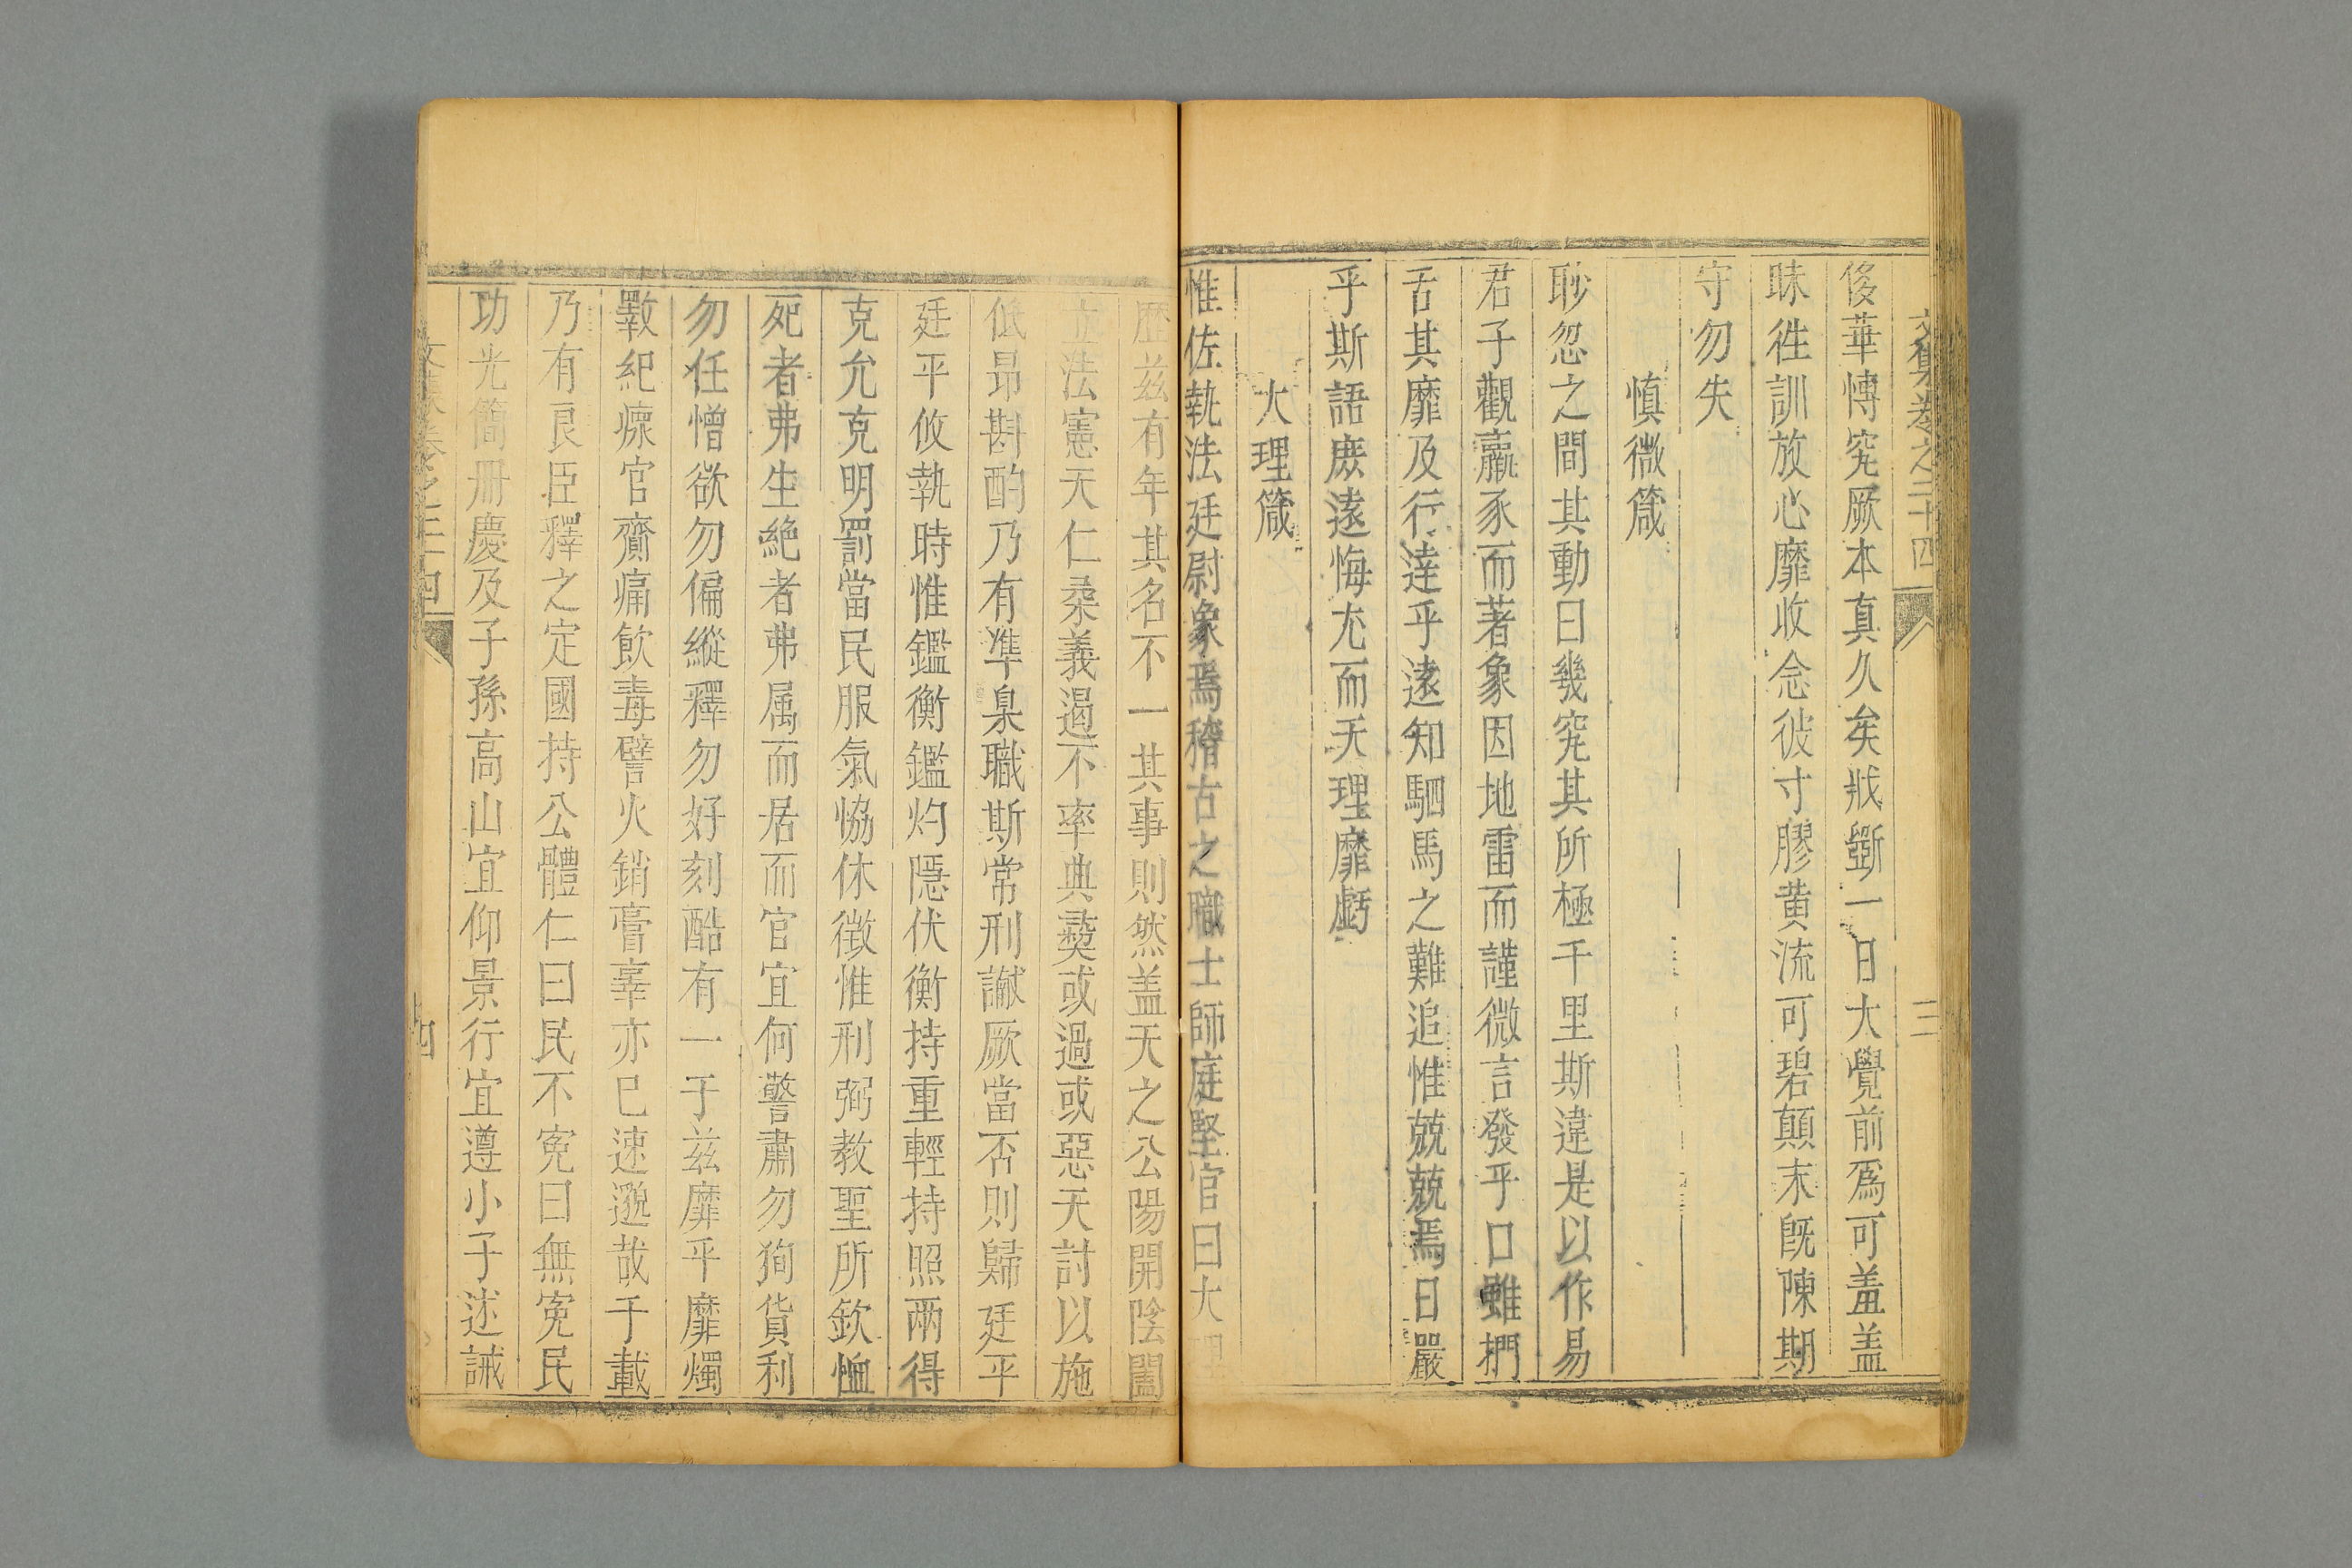 文集卷之二十四
三
侈華愽究厥本真久矣戕斵一日大覺前爲可羞盖
昧徃訓放心靡收念彼寸膠黄流可碧顛末既陳期
守勿失
慎微箴
眇忽之間其動曰幾究其所極千里斯違是以作易
君子觀羸豕而著象因地雷而謹微言發乎口雖捫
舌其靡及行逹乎逺知駟馬之難追惟兢兢焉日嚴
乎斯語庶逺悔尤而天理靡虧
大理箴
惟佐執法廷尉象焉稽古之職士師庭堅官曰大理
歷兹有年其名不一其事則然盖天之公陽開陰闔
法憲天仁柔義遏不率典彛或過或惡天討以施
低昻斟酌乃有凖臬職斯常刑讞厥當否則歸廷平
廷平攸執時惟鑑衡鑑灼隱伏衡持重輕持照兩得
克允克明罰當民服氣恊休徵惟刑弼教聖所欽恤
死者弗生絶者弗属而居而官宜何警肅勿狥貨利
勿任憎欲勿偏縱釋勿好刻酷有一于兹靡平靡燭
斁紀瘝官齎痛飲毒譬火銷膏辜亦已速邈哉于載
乃有良臣釋之定國持公體仁曰民不寃曰無寃民
功光簡冊慶及子孫高山宜仰景行宜遵小子述誡
文集卷之二十四
四